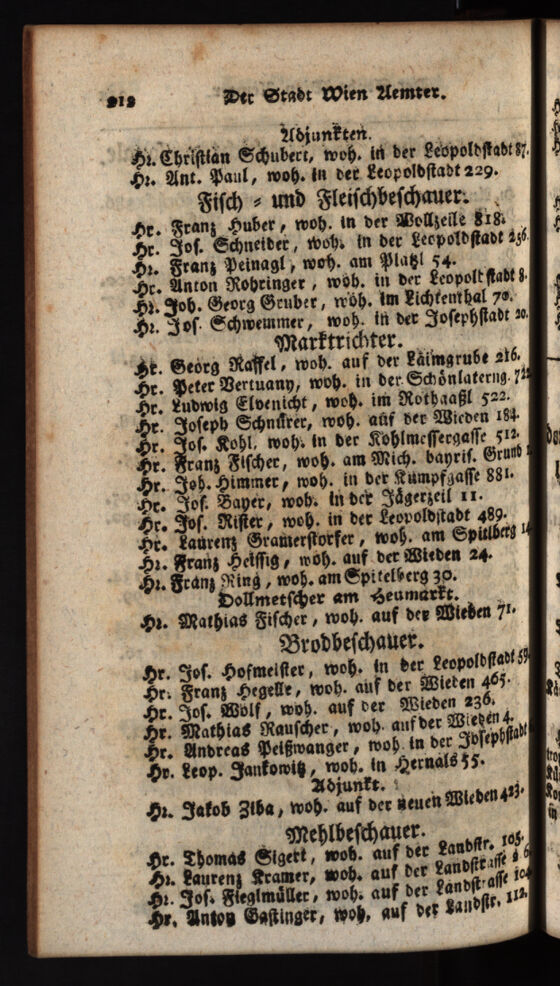 212 Der Stadt Wien Aemter.
Adjunkten.
Hr. Christian Schubert, woh. in der Leopoldstadt 87.
Hr. Ant. Paul, woh. in der Leopoldstadt 229.
Fisch- und Fleischbeschauer.
Hr. Franz Huber, woh. in der Wollzeile 818.
Hr. Jos. Schneider, woh. in der Leopoldstadt 256.
Hr. Franz Peinagl, woh. am Platzl 54.
Hr. Anton Rohringer, woh. in der Leopoltstadt 8.
Hr. Joh. Georg Gruber, woh. im Lichtenthal 70.
Hr. Jos. Schwemmer, woh. in der Josephstadt 20.
Marktrichter.
Hr. Georg Raffel, woh. auf der Laimgrube 216.
Hr. Peter Vertuany, woh. in der Schönlaterng.
Hr. Ludwig Elvenicht, woh. im Rothgaßl 522.
Hr. Joseph Schnürer, woh. auf der Wieden 184.
Hr. Jos. Kohl, woh. in der Kohlmessergasse 512.
Hr. Franz Fischer, woh. am Mich. bayris. Grund
Hr. Joh. Himmer, woh. in der Kumpfgasse 881.
Hr. Jos. Bayer, woh. in der Jägerzeil 11.
Hr. Jos. Rister, woh. in der Leopoldstadt 489.
Hr. Laurenz Gramerstorfer, woh. am Spitlberg
Hr. Franz Heissig, woh. auf der Wieden 24.
Hr. Franz Ring, woh. am Spitelberg 30.
Dollmetscher am Heumarkt.
Hr. Mathias Fischer, woh. auf der Wieden 71.
Brodbeschauer.
Hr. Jos. Hofmeister, woh. in der Leopoldstadt
Hr. Franz Hegelle, woh. auf der Wieten 465.
Hr. Jos. Wolf, woh. auf der Wieden 236.
Hr. Mathias Rauscher, woh. auf der Wieden 4.
Hr. Andreas Peißwanger, woh. in der Josephstadt
Hr. Leop. Jankowitz, woh. in Hernals 55.
Adjunkt.
Hr. Jakob Ziba, woh. auf der neuen Wieden 423.
Mehlbeschauer.
Hr. Thomas Sigert, woh. auf der Landstr. 105.
Hr. Laurenz Kramer, woh. auf der Landstrasse
Hr. Jos. Fieglmüller, woh. auf der Landstrasse 104
Hr. Anton Gastinger, woh. auf der Landstr. 112.